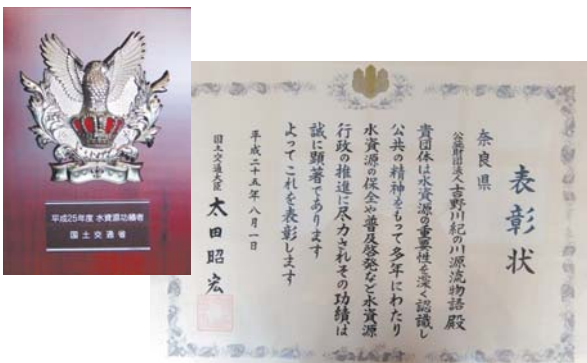 平成25年度 水資源功績者
国土交通省
表彰状
奈良県
公益財団法人吉野川紀の川源流物語 殿
貴団体は水資源の重要性を深く認識し
公共の精神をもって多年にわたり
水資源の保全や普及啓発など水資源
行政の推進に尽力されその功績は
誠に顕著であります
よってこれを表彰します
平成二十五年八月一日
国土交通大臣 太田昭宏